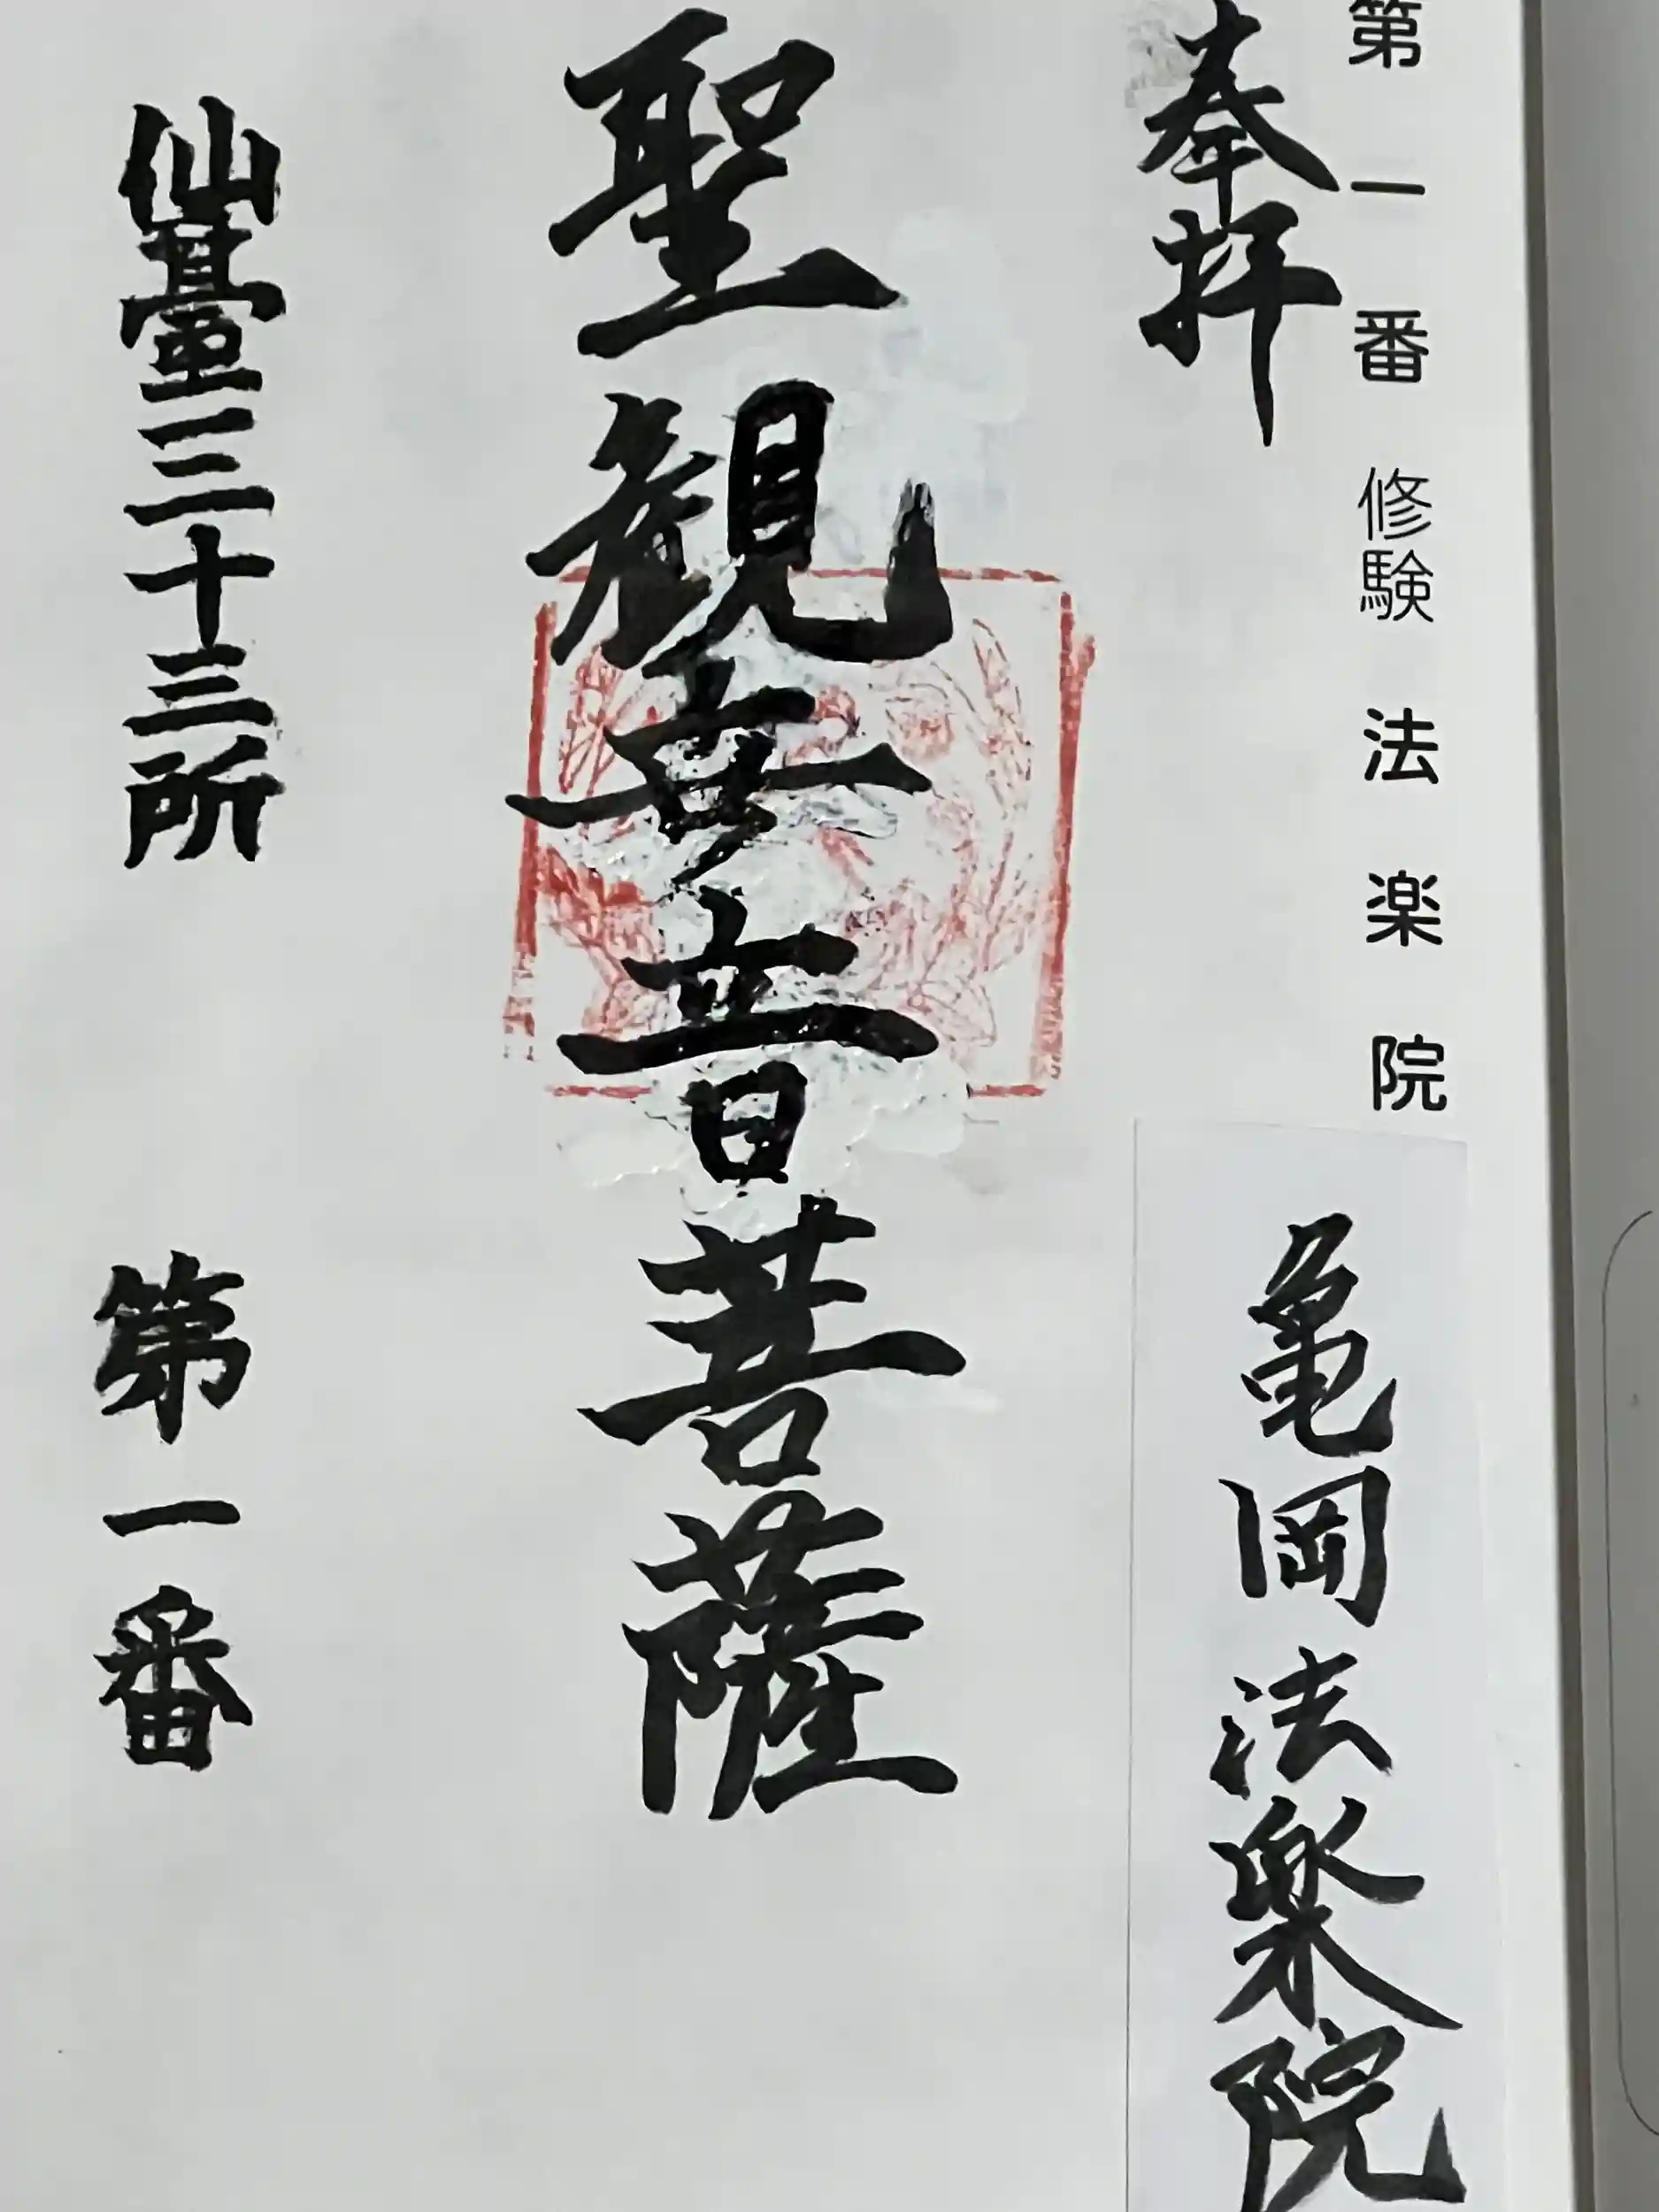 第一番 修験 法楽院
奉拝
亀岡法楽院
聖観世音菩薩
仙臺三十三所 第一番